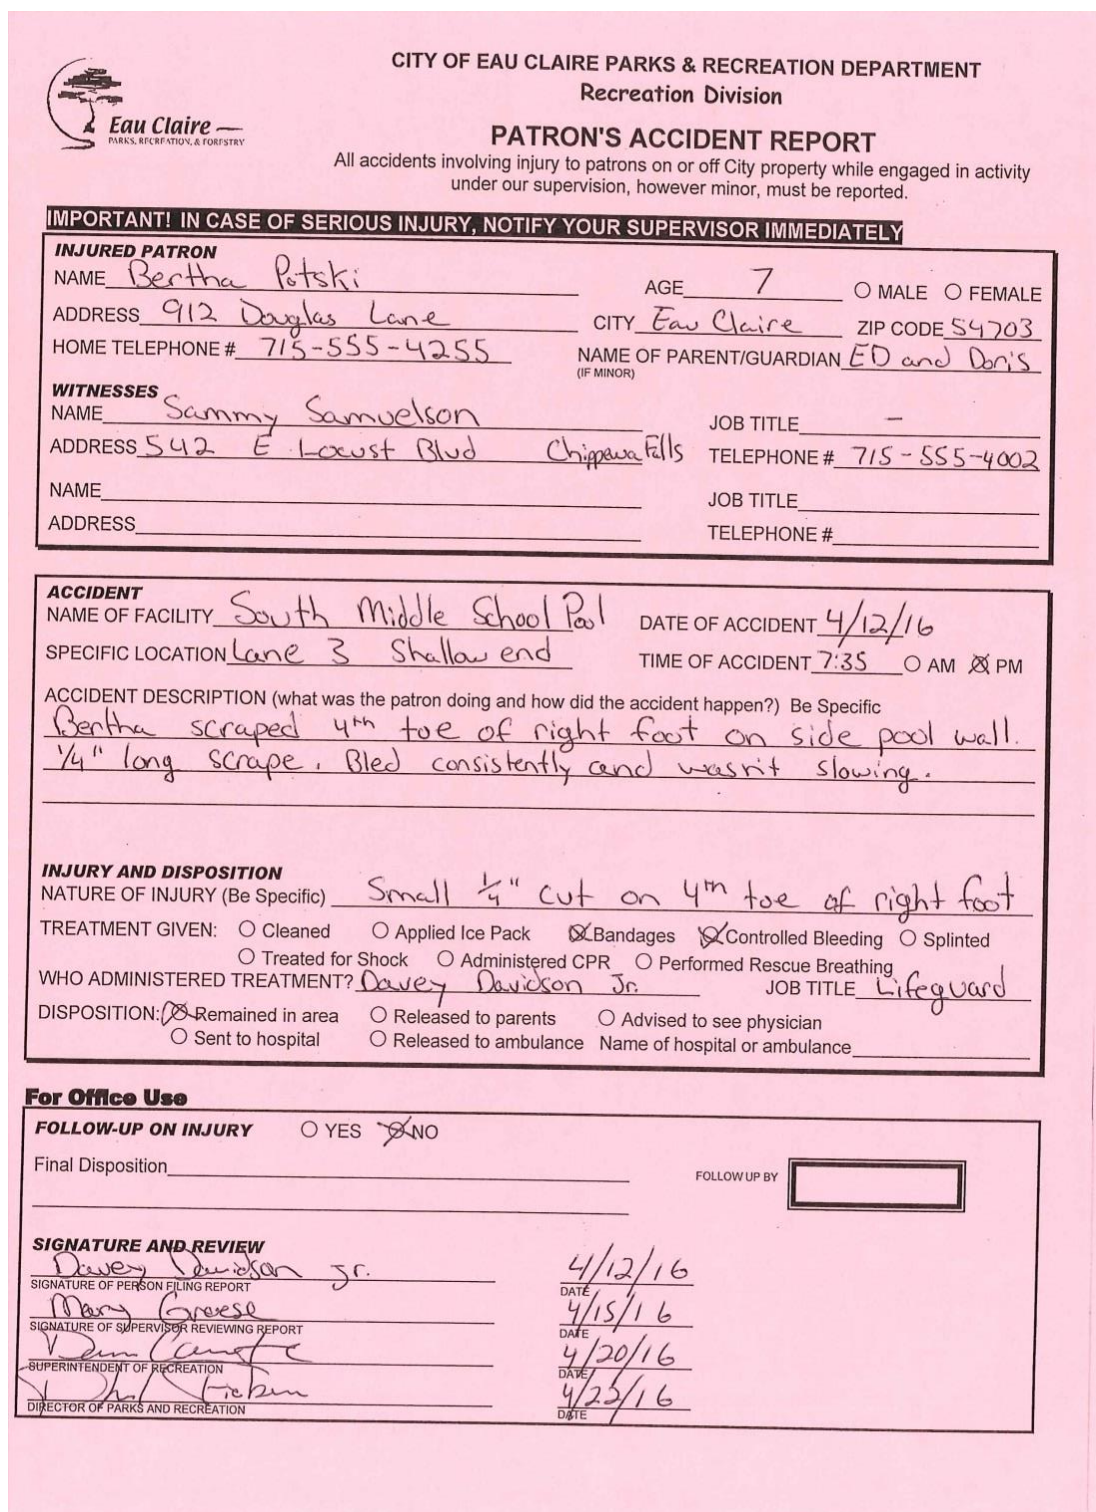 CITY OF EAU CLAIRE PARKS & RECREATION DEPARTMENT
Recreation Division
Eau Claire
PARKS, RECREATION, & FORESTRY
PATRON'S ACCIDENT REPORT
All accidents involving injury to patrons on or off City property while engaged in activity
under our supervision, however minor, must be reported.
IMPORTANT! IN CASE OF SERIOUS INJURY, NOTIFY YOUR SUPERVISOR IMMEDIATELY
INJURED PATRON
NAME Bertha Potski AGE 7 O MALE O FEMALE
ADDRESS 912 Douglas Lane CITY Eau Claire ZIP CODE 54703
HOME TELEPHONE # 715-555-4255 NAME OF PARENT/GUARDIAN ED and Doris
(IF MINOR)
WITNESSES
NAME Sammy Samuelson JOB TITLE -
ADDRESS 542 E Locust Blvd Chippewa Falls TELEPHONE # 715-555-4002
NAME JOB TITLE
ADDRESS TELEPHONE #
ACCIDENT
NAME OF FACILITY South Middle School Pool DATE OF ACCIDENT 4/12/16
SPECIFIC LOCATION Lane 3 Shallow end TIME OF ACCIDENT 7:35 O AM O PM
ACCIDENT DESCRIPTION (what was the patron doing and how did the accident happen?) Be Specific
Bertha scraped 4th toe of right foot on side pool wall.
1/4" long scrape. Bled consistently and wasn't slowing.
INJURY AND DISPOSITION
NATURE OF INJURY (Be Specific) Small 1/4" cut on 4th toe of right foot
TREATMENT GIVEN: O Cleaned O Applied Ice Pack O Bandages O Controlled Bleeding O Splinted
O Treated for Shock O Administered CPR O Performed Rescue Breathing
WHO ADMINISTERED TREATMENT? Davey Davidson Jr. JOB TITLE Lifeguard
DISPOSITION: O Remained in area O Released to parents O Advised to see physician
O Sent to hospital O Released to ambulance Name of hospital or ambulance
For Office Use
FOLLOW-UP ON INJURY O YES O NO
Final Disposition FOLLOW UP BY
SIGNATURE AND REVIEW
Davey Davidson Jr. 4/12/16
SIGNATURE OF PERSON FILING REPORT DATE
Mary Greese 4/15/16
SIGNATURE OF SUPERVISOR REVIEWING REPORT DATE
4/20/16
SUPERINTENDENT OF RECREATION DATE
DIRECTOR OF PARKS AND RECREATION DATE